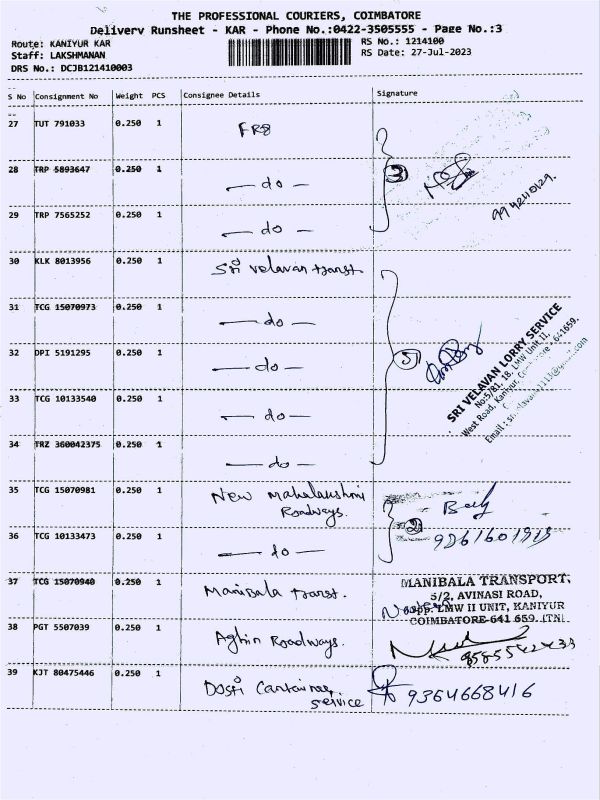 THE PROFESSIONAL COURIERS, COIMBATORE
Delivery Runsheet - KAR - Phone No.:0422-3505555 - Page No.:3
Route: KANIYUR KAR
RS No.: 1214100
Staff: LAKSHMANAN
RS Date: 27-Jul-2023
DRS No.: DCJB121410003
S No Consignment No Weight PCS Consignee Details Signature
27 TUT 791033 0.250 1
28 TRP 5893647 0.250 1 — do —
3
29 TRP 7565252 0.250 1 — do —
30 KLK 8013956 0.250 1 Sri velavan transt
31 TCG 15070973 0.250 1 — do —
32 DPI 5191295 0.250 1 — do —
5
SRI VELAVAN LORRY SERVICE
No:5/81, 18, LMW Unit II,
West Road, Kaniyur, 641659.
Email :
33 TCG 10133540 0.250 1 — do —
34 TRZ 360042375 0.250 1 — do —
35 TCG 15070981 0.250 1 New Mahalakshmi
Roadways.
2
36 TCG 10133473 0.250 1 — do —
37 TCG 15070940 0.250 1 Manibala transt.
MANIBALA TRANSPORT,
5/2, AVINASI ROAD,
Opp. LMW II UNIT, KANIYUR
COIMBATORE-641 659. (TN).
38 PGT 5507039 0.250 1 Roadways.
39 KJT 80475446 0.250 1 Dosti Container
service
9364668416